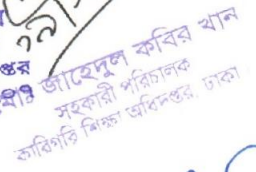 জাহেদুল কবির খান
সহকারী পরিচালক
কারিগরি শিক্ষা অধিদপ্তর, ঢাকা